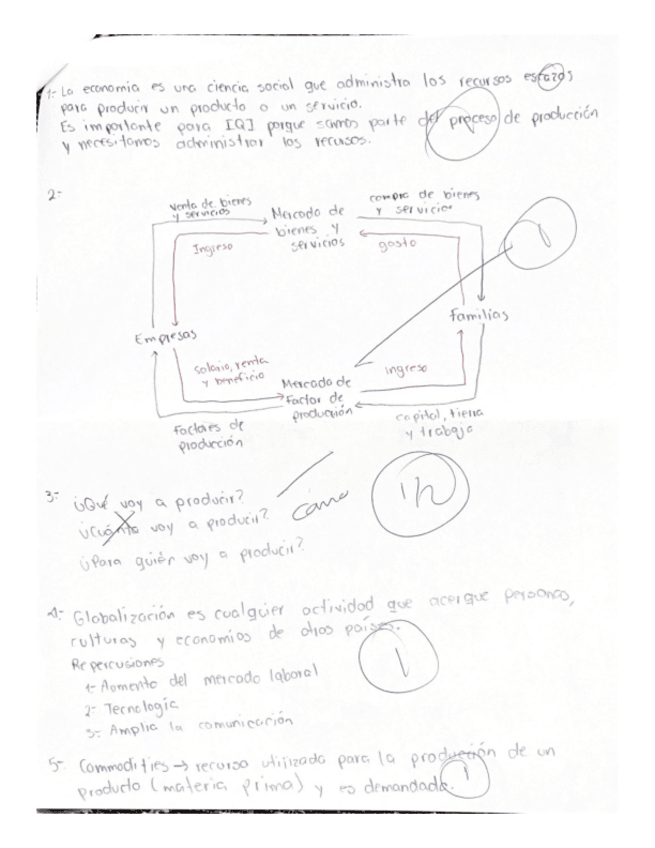 1.- La economía es una ciencia social que administra los recursos escazos
para producir un producto o un servicio.
Es importante para IQI porque somos parte del proceso de producción
y necesitamos administrar los recursos.
2-
venta de bienes
y servicios
Mercado de
bienes y
servicios
compra de bienes
y servicios
Ingreso
gasto
1
Empresas
familias
salario, renta
y beneficio
Mercado de
factor de
producción
ingreso
factores de
producción
capital, tierra
y trabajo
3- ¿Qué voy a producir?
¿Cuánto voy a producir? Cómo
¿Para quién voy a producir?
1/2
4- Globalización es cualquier actividad que acerque personas,
culturas y economías de otros países.
Repercusiones
1- Aumento del mercado laboral
2- Tecnología
3- Amplia la comunicación
1
5- Commodities → recurso utilizado para la producción de un
producto (materia prima) y es demandado.
1